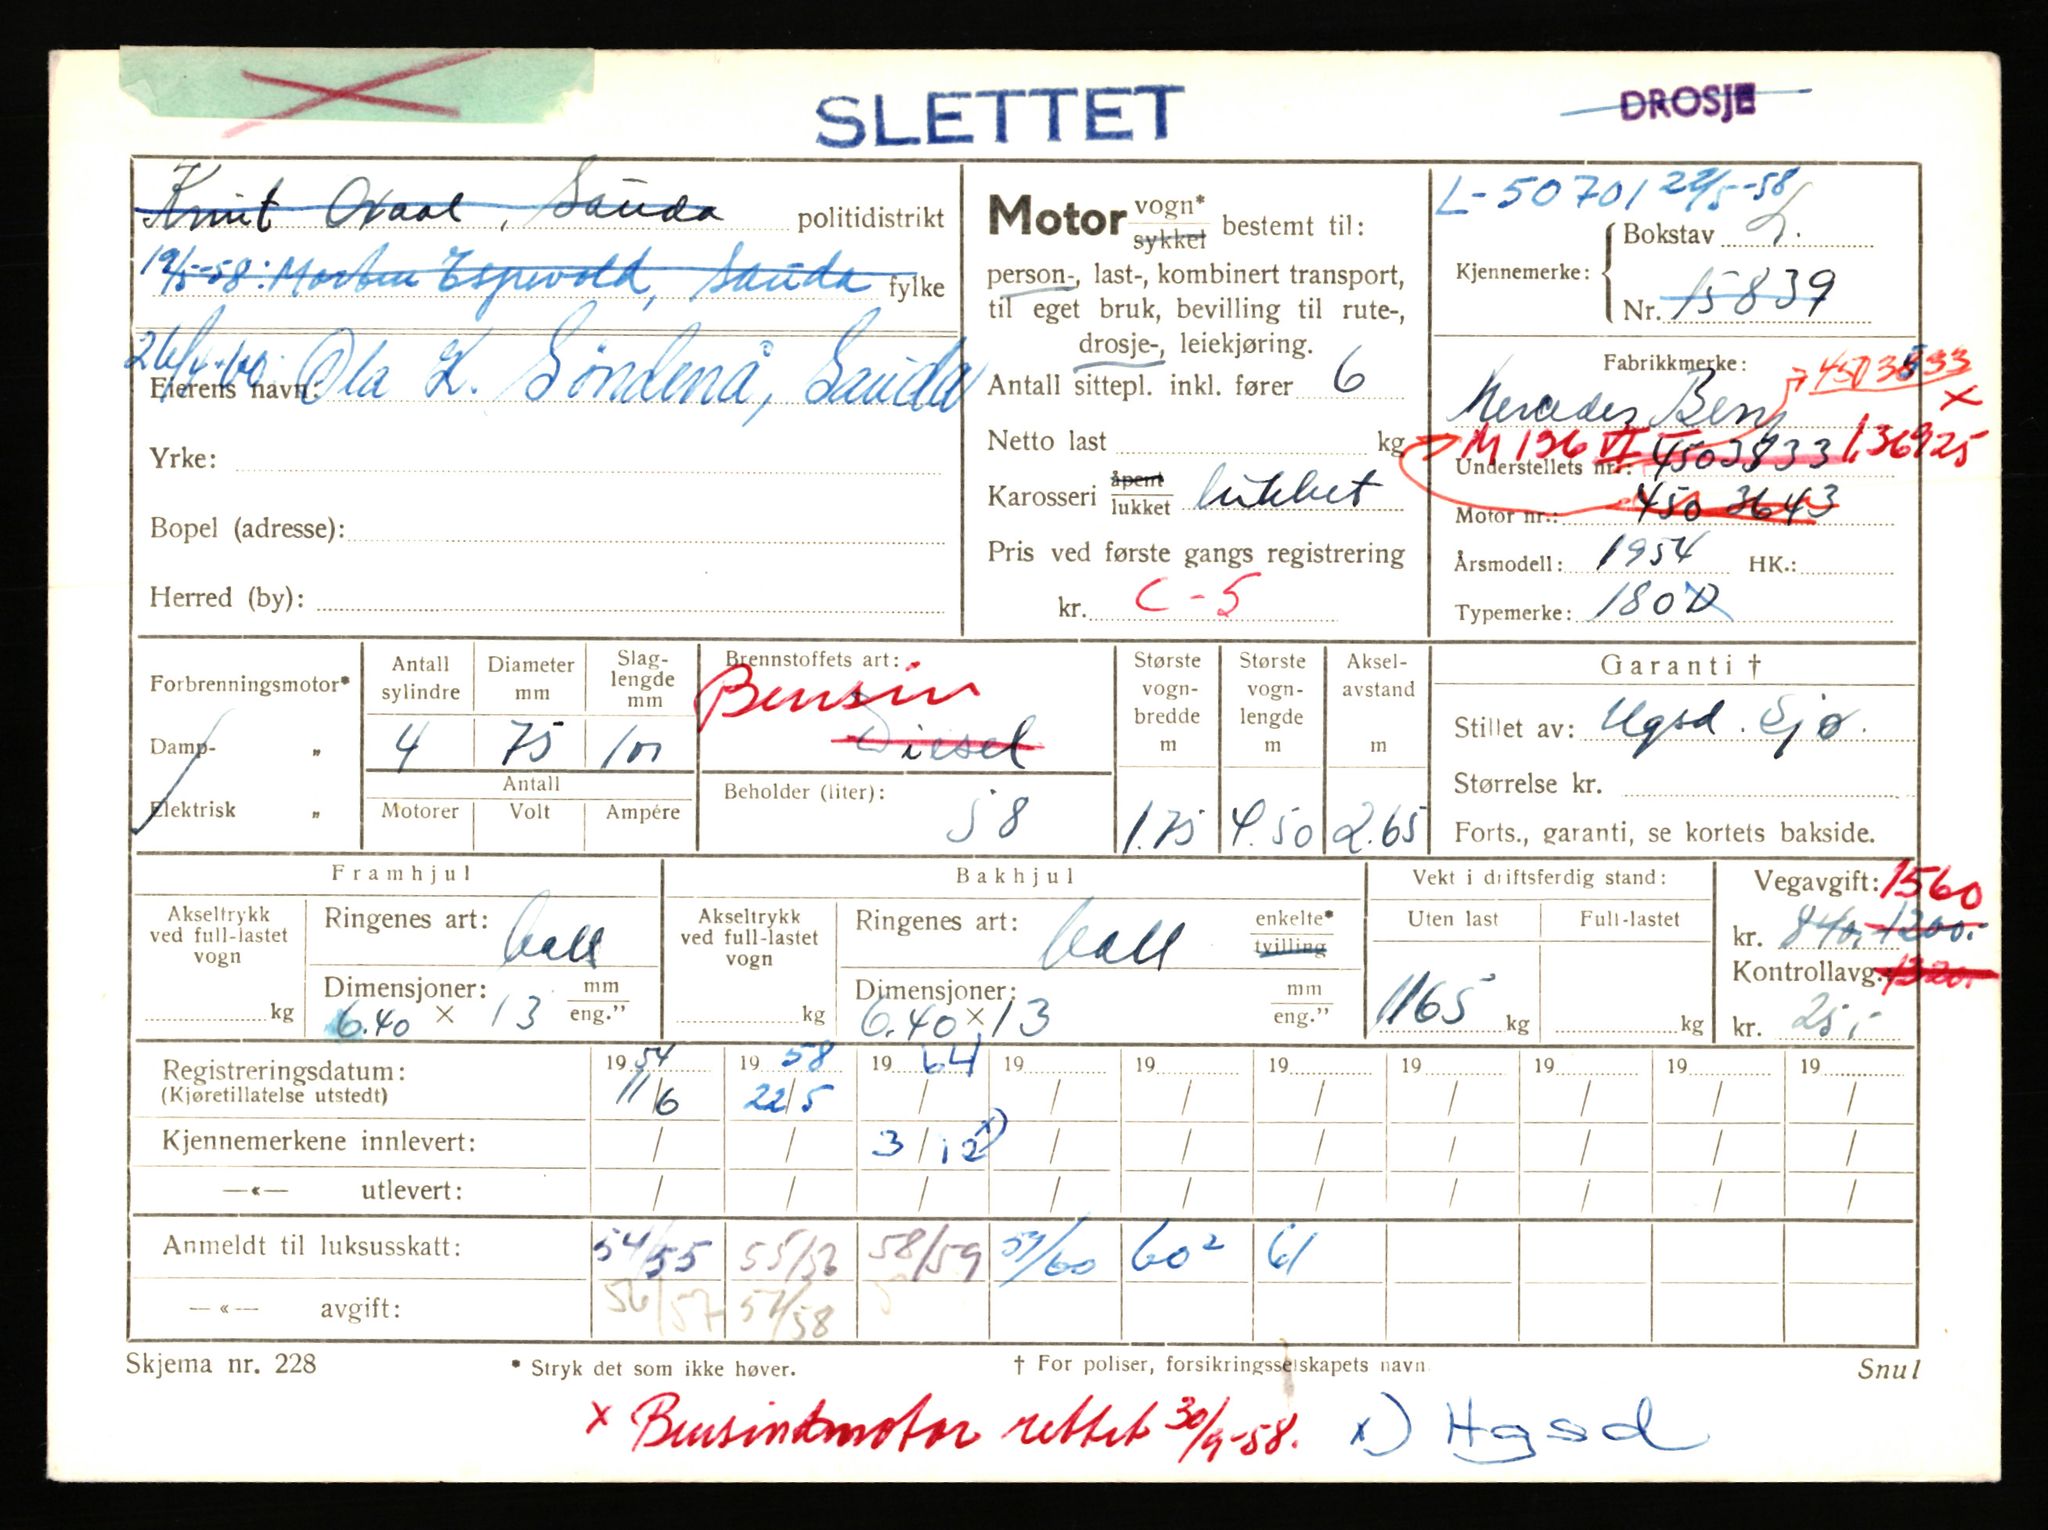 SLETTET
DROSJE
Knut Oxaal, Sauda politidistrikt
19/5-58: Morten Espevold, Sauda fylke
26/4-60. Ola K. Söndenå, Sauda
Eierens navn:
Yrke:
Bopel (adresse):
Herred (by):
Motor vogn* sykkel bestemt til:
person-, last-, kombinert transport,
til eget bruk, bevilling til rute-,
drosje-, leiekjøring.
Antall sittepl. inkl. fører 6
Netto last kg
Karosseri åpent lukket lukket
Pris ved første gangs registrering
kr. C-5
L-50701 22/5-58
Kjennemerke: Bokstav L.
Nr. 15839
Fabrikkmerke: 4503533 x
Mercedes Benz
M 136 VI 136925
Understellets nr.: 4503933
Motor nr.: 450 3643
Årsmodell: 1954 HK.:
Typemerke: 180 D
Forbrenningsmotor*
Damp- „
Elektrisk „
Antall sylindre Diameter mm Slag-lengde mm
4 75 101
Antall
Motorer Volt Ampére
Brennstoffets art:
Bensin
Diesel
Beholder (liter): 58
Største vogn-bredde m Største vogn-lengde m Aksel-avstand m
1.75 4.50 2.65
Garanti †
Stillet av: Hgsd. Sjø.
Størrelse kr.
Forts., garanti, se kortets bakside.
Framhjul
Akseltrykk ved full-lastet vogn kg
Ringenes art: ball
Dimensjoner: mm eng."
6.40 x 13
Bakhjul
Akseltrykk ved full-lastet vogn kg
Ringenes art: ball enkelte* tvilling
Dimensjoner: mm eng."
6.40 x 13
Vekt i driftsferdig stand:
Uten last Full-lastet
1165 kg kg
Vegavgift: 1560
kr. 840,- 1200.-
Kontrollavg.: 1320.-
kr. 25,-
Registreringsdatum: 19 54 19 58 19 64 19 19 19 19 19 19 19
(Kjøretillatelse utstedt) 11/6 22/5 / / / / / / / /
Kjennemerkene innlevert: / / 3/12 x) / / / / / / /
—«— utlevert: / / / / / / / / / /
Anmeldt til luksusskatt: 54/55 55/56 58/59 59/60 60² 61
—«— avgift: 56/57 57/58
Skjema nr. 228 * Stryk det som ikke høver. † For poliser, forsikringsselskapets navn Snul
x Bensinmotor rettet 30/9-58. x) Hgsd